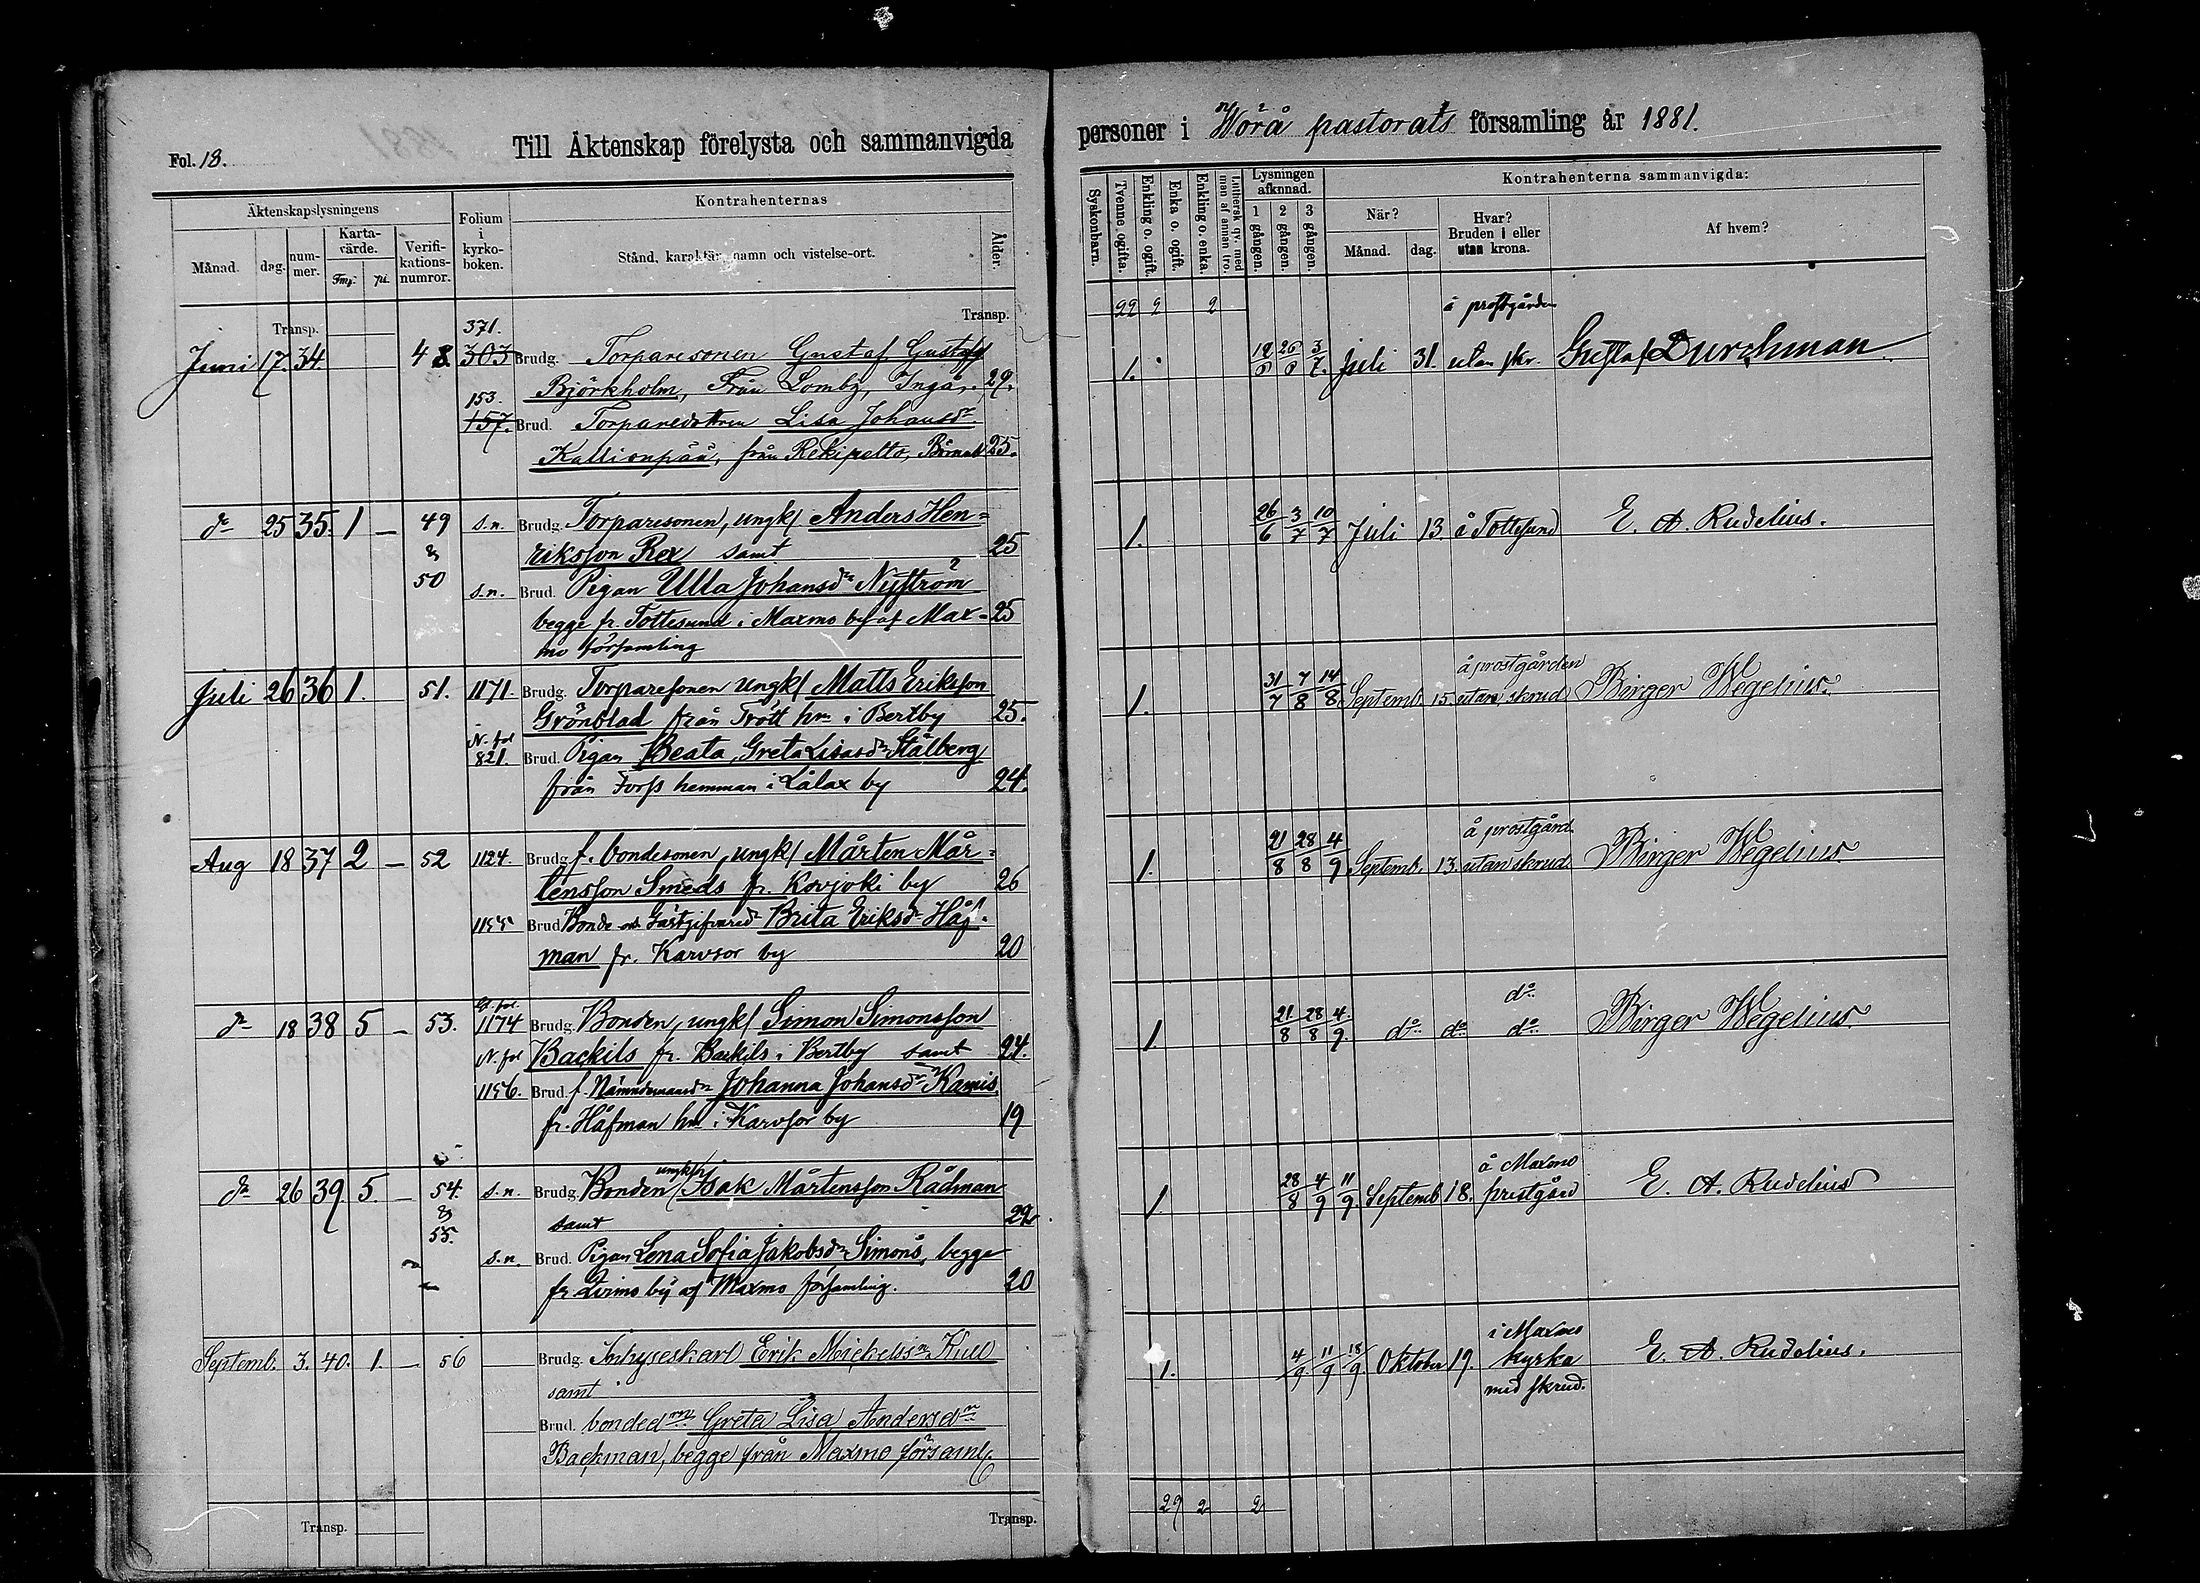 Fol. 18.
Till Äktenskap förelysta och sammanvigda
Äktenskapslysningens
Månad.
dag.
num-
mer.
Karta-
värde.
Fmg.
pi.
Verifi-
kations-
numror.
Folium
i
kyrko-
boken.
Kontrahenternas
Stånd, karaktär, namn och vistelse-ort.
Ålder.
Transp.
Transp.
Juni 17. 34. 48. 371.
303 Brudg. Torparesonen Gustaf Gustafs
Björkholm, Från Lomby, Ingå, 29.
153.
157. Brud. Torparedottren Lisa Johansdr
Kallionpää, från Rekipelto, 25.
dr 25 35. 1 — 49 s.n. Brudg. Torparesonen, ungk/ Anders Hen=
& riksson Rex samt 25
50 s.n. Brud. Pigan Ulla Johansdr Nyström
begge fr. Tottesund i Maxmo by af Max= 25
mo församling
Juli 26 36 1. 51. 1171. Brudg. Torparesonen Ungk/ Matts Eriksson
Grönblad från Trött hn i Bertby 25.
N. fol
821. Brud. Pigan Beata Greta Lisasdr Stålberg
från Forss hemman i Lålax by 24.
Aug 18 37 2 — 52 1124. Brudg. f. bondesonen, ungk/ Mårten Mår=
tensson Smeds fr. Kovjoki by 26
1155 Brud Bonde och Gästgifvared Brita Eriksdr Håf=
man fr. Karvsor by 20
dr 18 38 5 — 53. 1174 Brudg. Bonden, ungk/ Simon Simonsson
N. fol Backils fr. Backils i Bertby samt 24.
1156. Brud. f. Nämndemansdr Johanna Johansdr Kamis
fr. Håfman hn i Karvsor by 19
dr 26 39 5. — 54. s.n. Brudg. Bonden ungk/ Isak Mårtensson Rådman
& samt 29.
55. s.n. Brud. Pigan Lena Sofia Jakobsdr Simons, begge
fr. Österö by af Maxmo församling. 20
Septemb. 3. 40. 1. — 56 Brudg. Inhyseskarl Erik Mickelssn Kull
samt
Brud. bondedrn Greta Lisa Andersdr
Backman, begge från Maxmo församl.
Transp.
Transp.
personer i Wörå pastorats församling år 1881.
Syskonbarn.
Tvenne ogifta.
Enkling o. ogift.
Enka o. ogift.
Enkling o. enka.
Luthersk qv. med
man af annan tro.
Lysningen
afkunnad.
1 gången.
2 gången.
3 gången.
Kontrahenterna sammanvigda:
När?
Månad.
dag.
Hvar?
Bruden i eller
utan krona.
Af hvem?
22 2 2
å prostgården
1. 19/6 26/6 3/7. Juli 31. utan skr. Gustaf Durchman
1. 26/6 3/7 10/7 Juli 13. å Tottesund E. A. Rudelius.
å prostgården
1. 31/7 7/8 14/8. Septemb. 15. utan skrud Birger Wegelius.
å prostgård
1. 21/8 28/8 4/9 Septemb. 13. utan skrud Birger Wegelius
do
1. 21/8 28/8 4/9. do do do Birger Wegelius
å Maxmo
1. 28/8 4/9 11/9. Septemb 18. prestgård E. A. Rudelius
i Maxmo
1. 4/9. 11/9 18/9. Oktober 19. kyrka E. A. Rudelius.
med skrud.
29 2 2